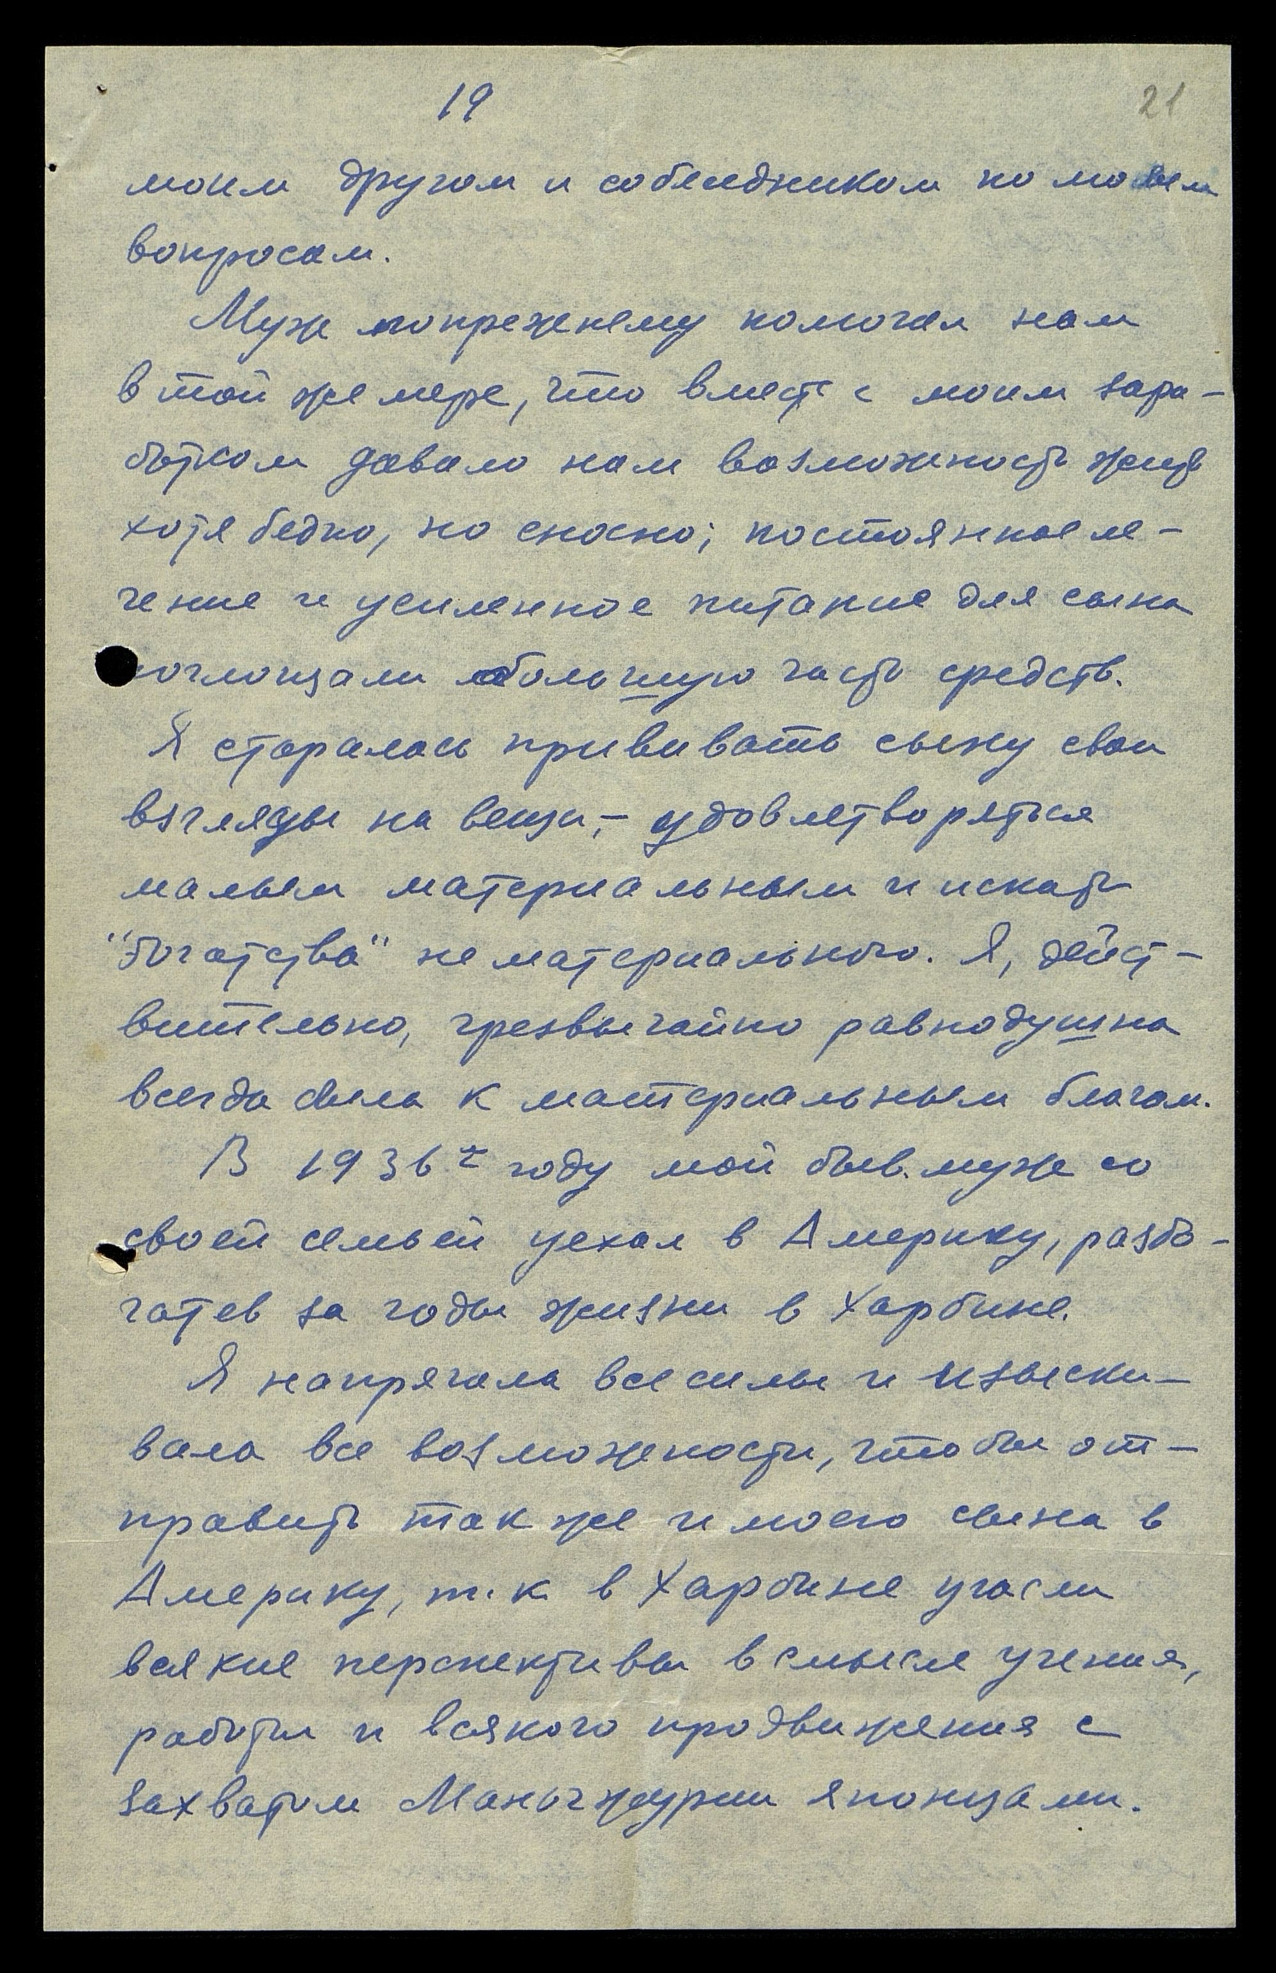 19
21
моим другом и собеседником по моим
вопросам.
Муж попрежнему помогал нам
в той же мере, что вместе с моим зара-
ботком давало нам возможность жить
хотя бедно, но сносно; постоянное ле-
чение и усиленное питание для сына
поглощали большую часть средств.
Я старалась прививать сыну свои
взгляды на вещи,- удовлетворяться
малым материальным и искать
"богатства" не материального. Я, дейст-
вительно, чрезвычайно равнодушна
всегда была к материальным благам.
В 1936м году мой быв. муж со
своей семьей уехал в Америку, разбо-
гатев за годы жизни в Харбине.
Я напрягала все силы и изыски-
вала все возможности, чтобы от-
править также и моего сына в
Америку, т. к в Харбине угасли
всякие перспективы в смысле учения,
работы и всякого продвижения с
захватом Маньчжурии японцами.